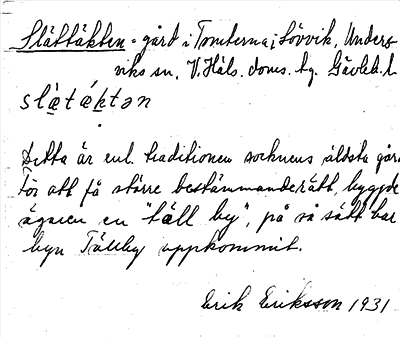 Slättäkten = gård i Tomterna i Lövvik, Unders-
viks sn, V. Häls. doms. tg. Gävleb. l
slätäktən
Detta är enl. traditionen socknens äldsta går
För att få större bestämmanderätt, byggde
ägaren en "täll by", på så sätt har
byn Tällby uppkommit.
Erik Eriksson 1931